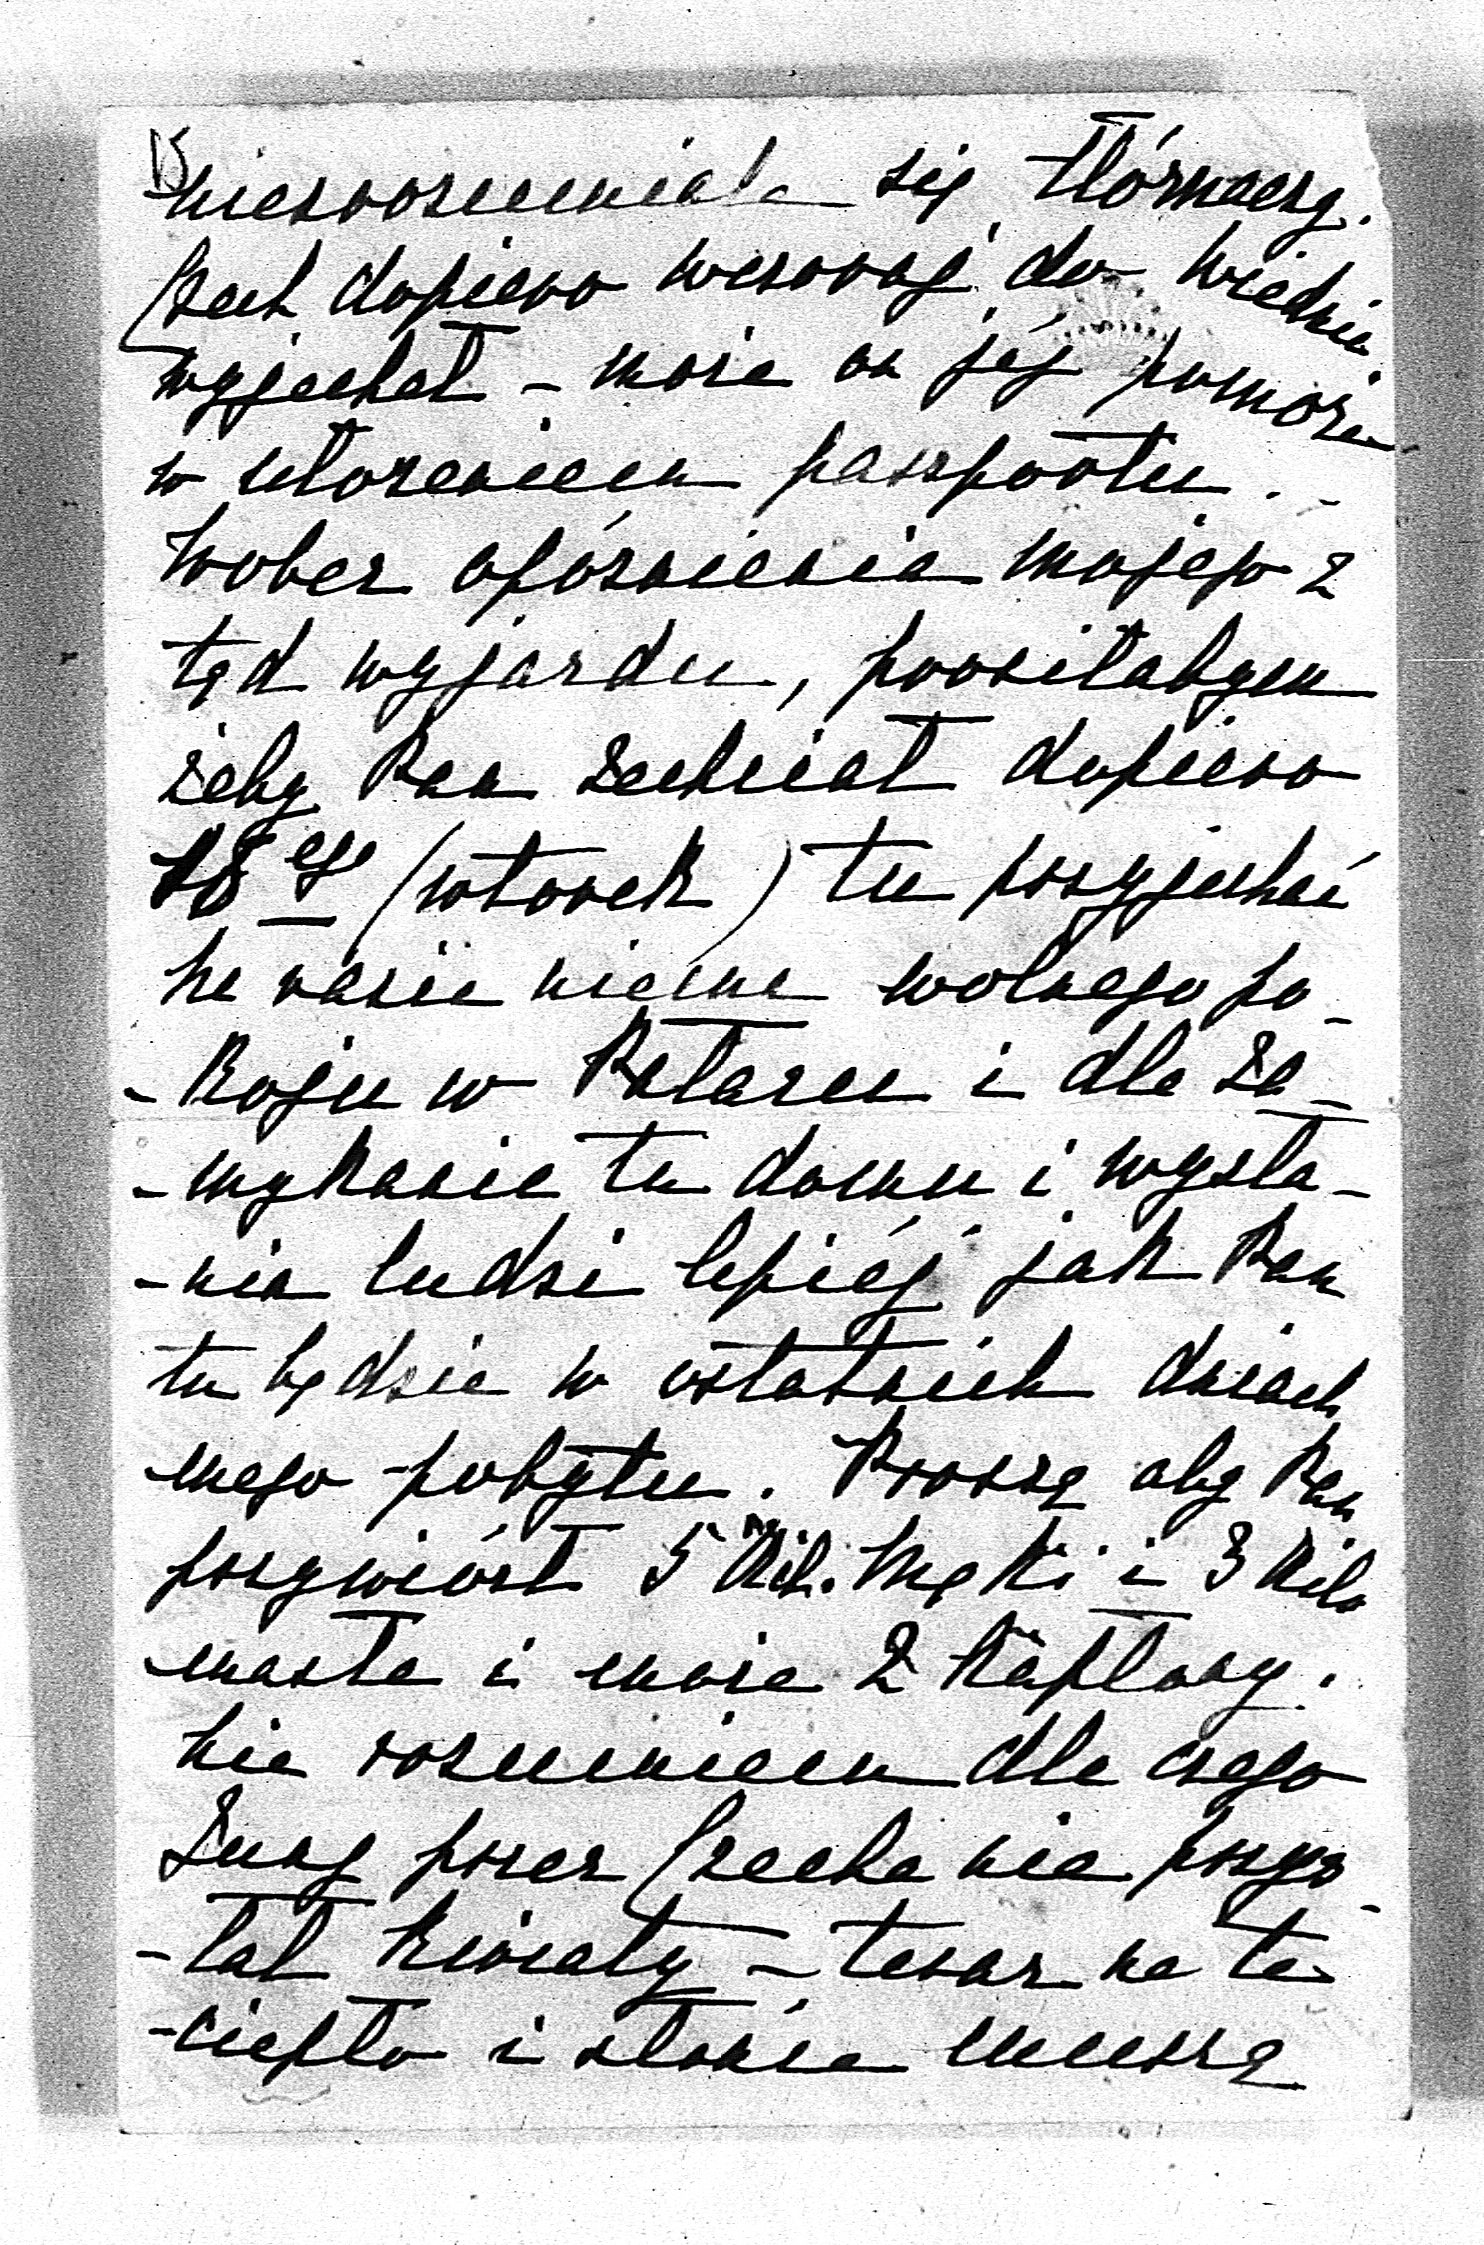 niezrozumiale się tłómaczy.
Czech dopiero wczoraj do Wiednia
wyjechał – może on jéj pomoże
w ułożeniem passportu. –
Wobec opóźnienia mojego z
tąd wyjazdu, prosiłabym
żeby Pan zechciał dopiero
18ego (wtorek) tu przyjechać
na razie niema wolnego po-
-koju w Pałacu i dla za-
-mykanie tu domu i wysła-
-nia ludzi lepiéj jak Pan
tu będzie w ostatnich dniach
mego pobytu. Proszę aby Pan
przywiózł 5 Kil. Mąki i 3 Kilo
masła i może 2 Kapłony.
Nie rozumiem dla czego
przez Czecha nie przys-
-łał Kwiaty – teraz na te
-ciepło i słońce muszą